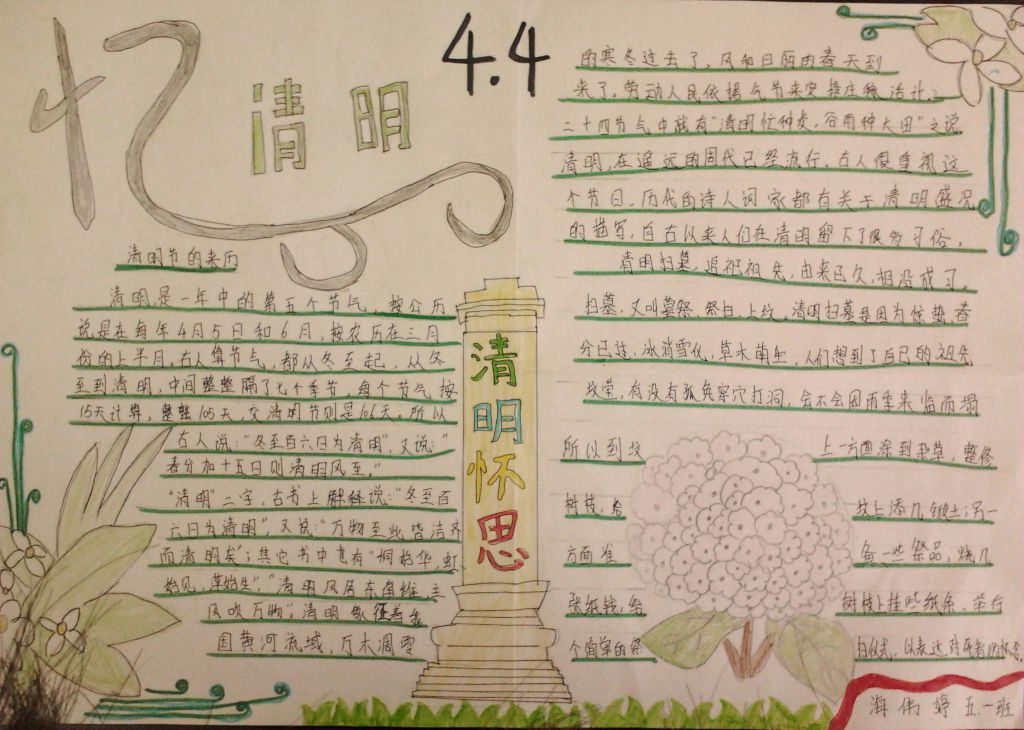 忆
清明
4.4
清明节的来历
清明,是一年中的第五个节气,按公历
说是在每年4月5日和6月,按农历在三月
份的上半月,古人算节气,都从冬至起,从冬
至到清明,中间整整隔了七个季节,每个节气按
15天计算,整整105天,交清明节则是106天。所以
古人说:“冬至百六日为清明”,又说:“
春分加十五日则清明风至。”
“清明”二字,古书上解释说:“冬至百
六日为清明”,又说:“万物至此皆洁齐
而清明矣”;其它书中也有“桐始华,虹
始见,萍始生”,“清明风居东南维,主
风吹万物”;清明象征着
因黄河流域,万木凋零
清明怀思
的寒冬过去了,风和日丽的春天到
来了。劳动人民依据气节来安排庄稼活计。
二十四节气中就有“清明忙种麦,谷雨种大田”之说
清明,在遥远的周代已经流行,古人很重视这
个节日,历代的诗人词家都有关于清明盛况
的描写,自古以来人们在清明留下了很多习俗。
清明扫墓,追祀祖先,由来已久,相沿成习。
扫墓,又叫墓祭,祭扫,上坟。清明扫墓是因为惊蛰、春
分已过,冰消雪化,草木萌生,人们想到了自己的祖先
坟茔,有没有狐兔穿穴打洞,会不会因雨季来临而塌
所以到坟 上一方面除到杂草,整修
树枝,给 坟上添几锹土;另一
方面准 备一些祭品,烧几
张纸钱,给 树枝上挂些纸条,举行
个简单的祭 扫仪式,以表达对死者的怀念。
海伟婷 五.一班